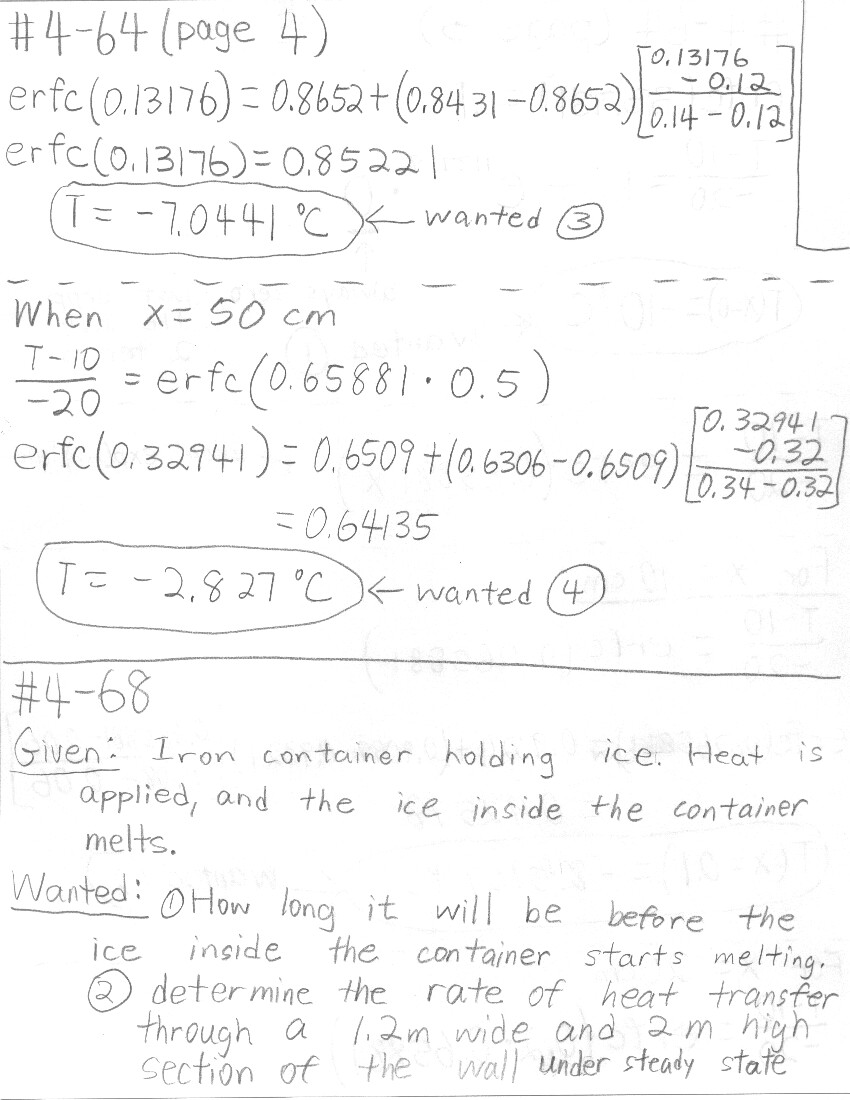 #4-64 (page 4)
erfc(0.13176) = 0.8652 + (0.8431 - 0.8652) [(0.13176 - 0.12) / (0.14 - 0.12)]
erfc(0.13176) = 0.85221
T = -7.0441 °C ← wanted ③
When x = 50 cm
(T - 10) / -20 = erfc(0.65881 · 0.5)
erfc(0.32941) = 0.6509 + (0.6306 - 0.6509) [(0.32941 - 0.32) / (0.34 - 0.32)]
= 0.64135
T = -2.827 °C ← wanted ④
#4-68
Given: Iron container holding ice. Heat is
applied, and the ice inside the container
melts.
Wanted: ① How long it will be before the
ice inside the container starts melting.
② determine the rate of heat transfer
through a 1.2m wide and 2 m high
section of the wall under steady state